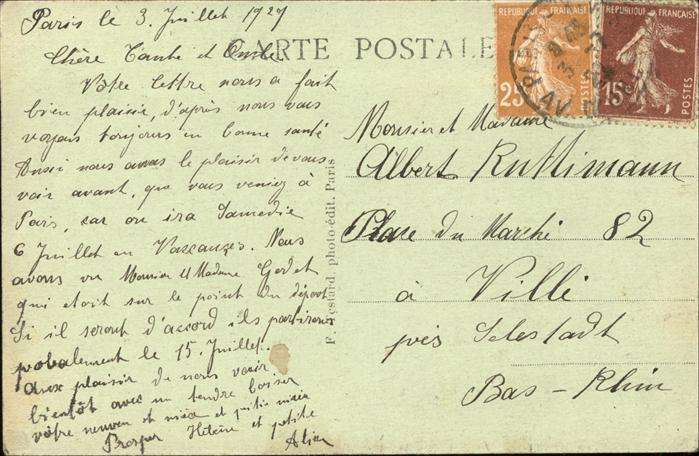 Paris le 3. Juillet 1929
Chère Tante et Oncle
CARTE POSTALE
Vôtre lettre nous a fait
bien plaisir, d'après nous vous
voyons toujours en bonne santé
Aussi nous avons le plaisir de vous
voir avant, que vous veniez à
Paris, car on ira Samedie
6 Juillet en Vaccanzes. Nous
avons vu Monsier et Madame Godet
qui etait sur le point du départ
Si il seront d'accord ils partirons
probalement le 15. Juillet.
Aux plaisir de nous voir
bientôt avec un tendre baiser
vôtre neuveu et nièce et petite nièce
Prosper Hélène et petite
F. Lestard photo-édit. Paris
REPUBLIQUE FRANÇAISE
25
POSTES
REPUBLIQUE FRANÇAISE
15c
POSTES
Monsieur et Madame
Albert Ruttimann
Place du Marché 82
à Villé
près Selestadt
Bas-Rhin